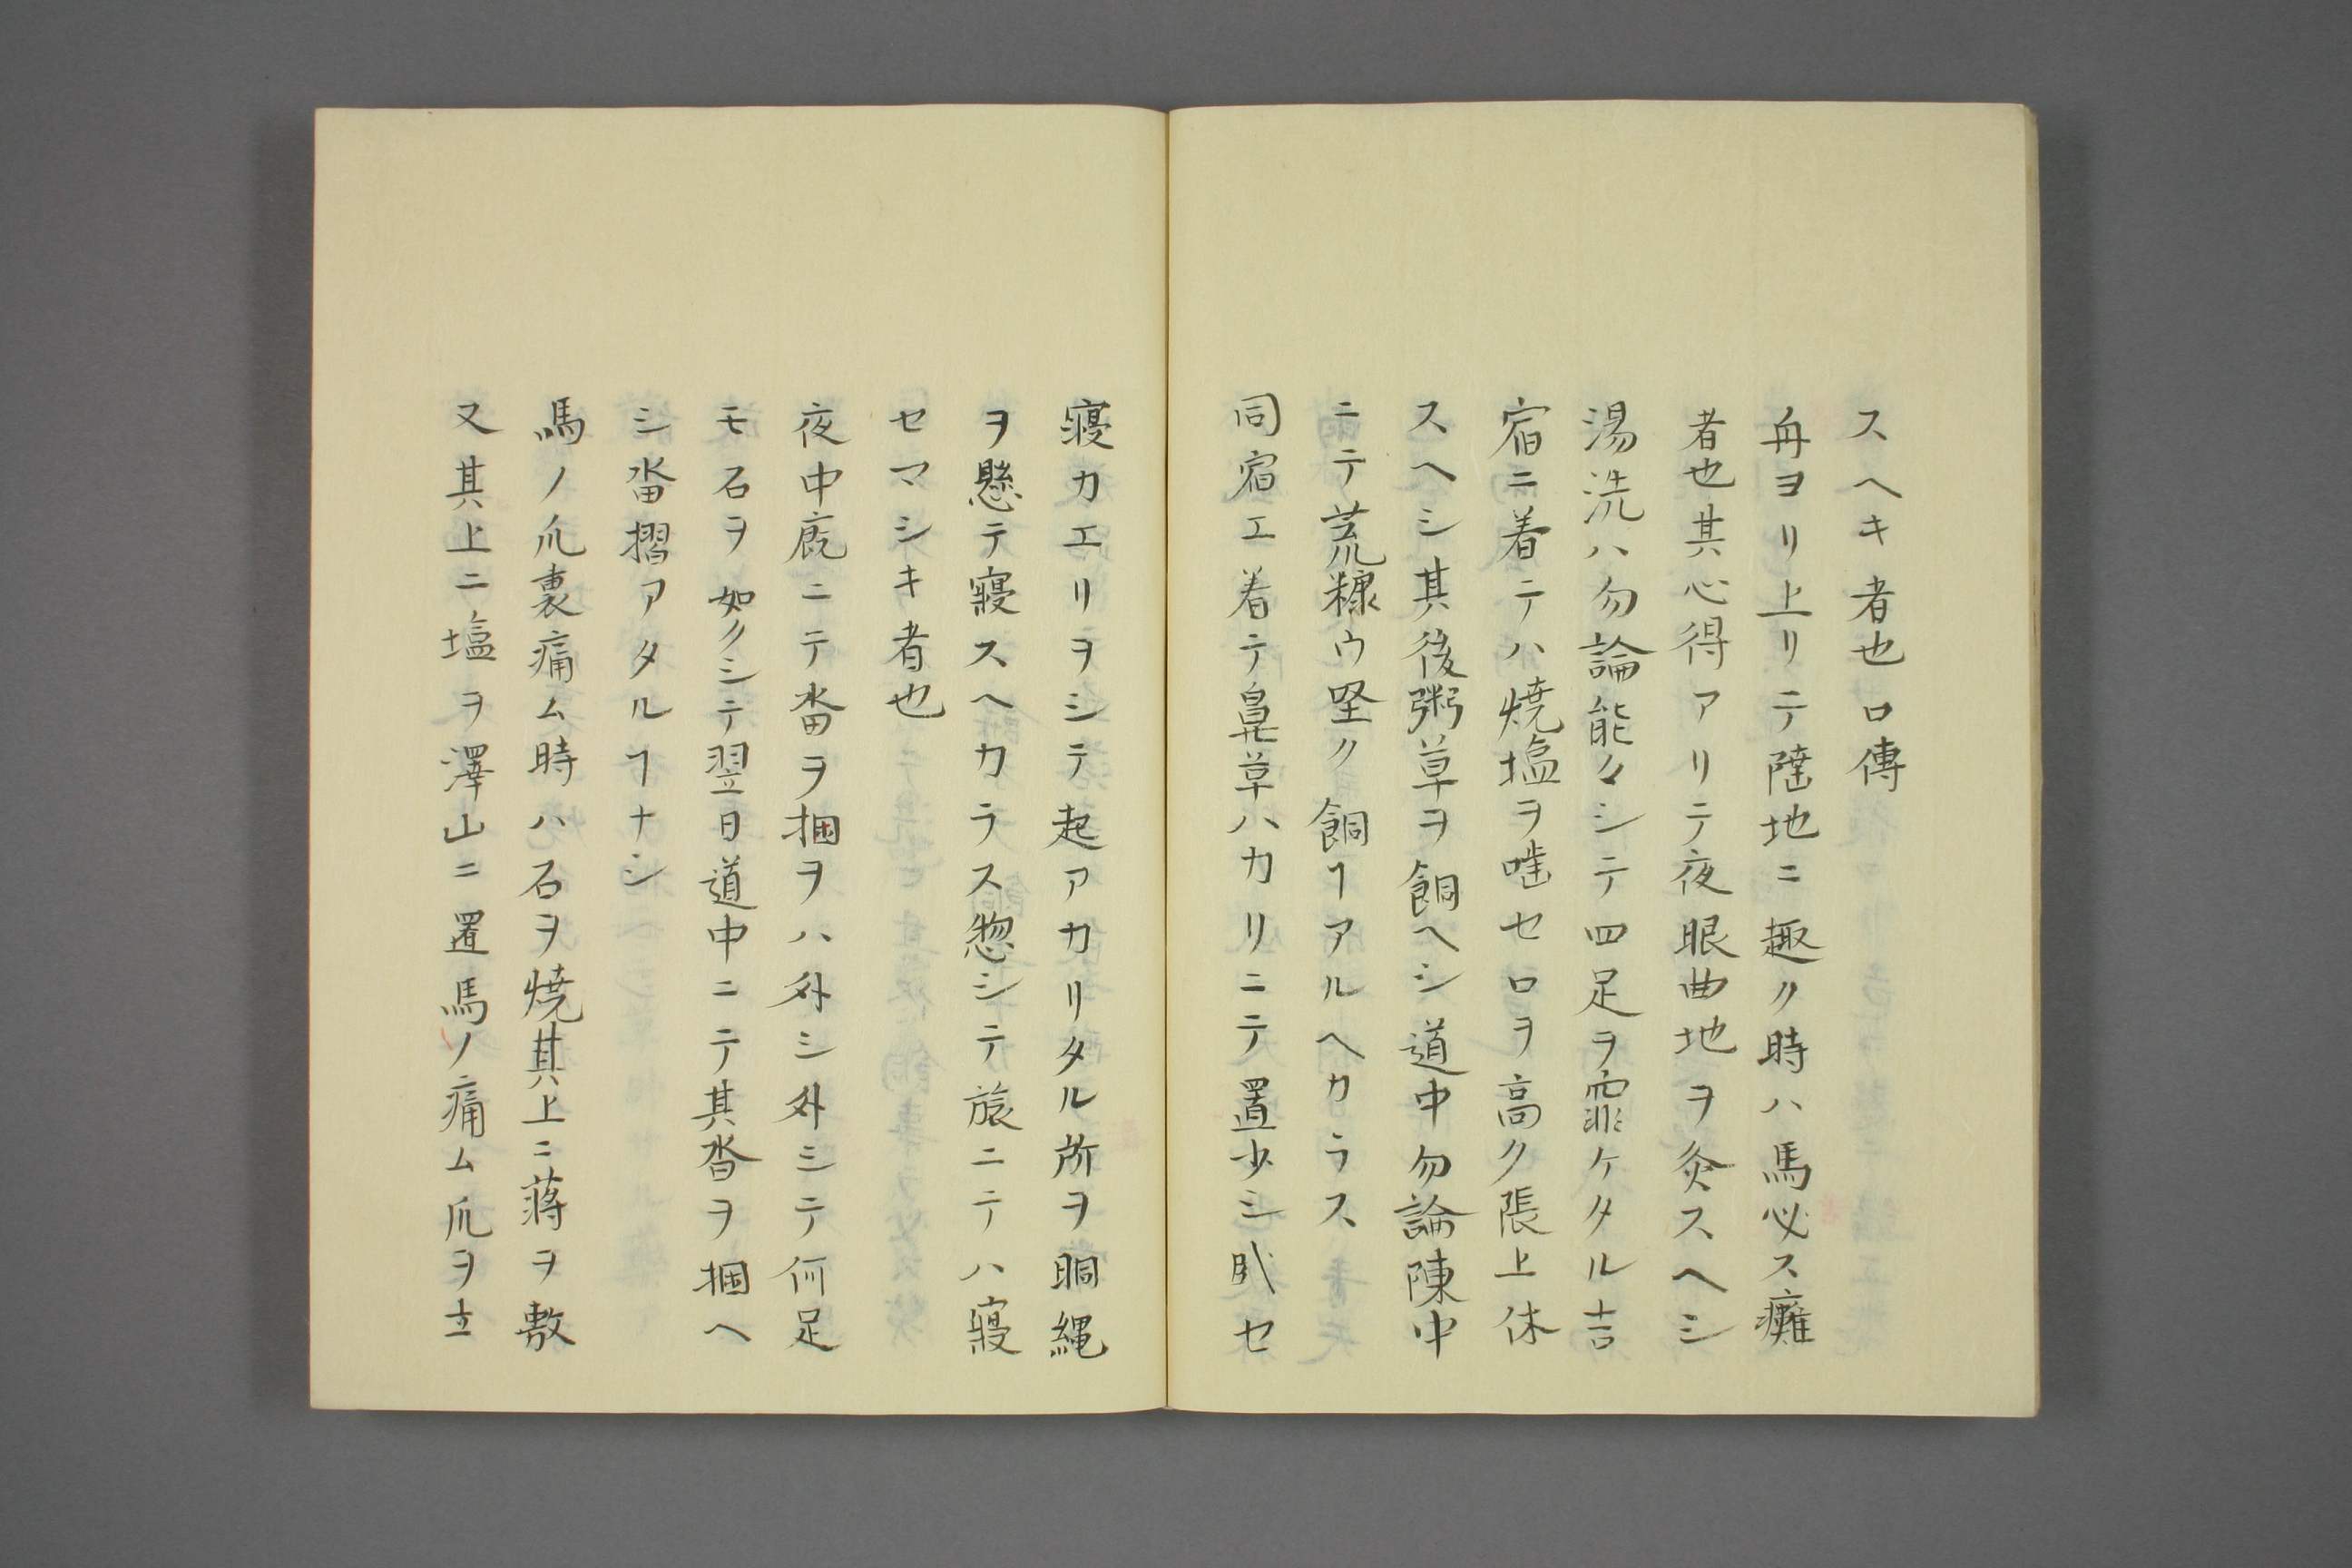 スヘキ者也口傳
舟ヨリ上リテ陸地ニ趣ク時ハ馬必ス癱
者也其心得アリテ夜眼曲地ヲ灸スヘシ
湯洗ハ勿論能々シテ四足ヲケタル吉
宿ニ着テハ焼塩ヲ噬セロヲ高ク張上休
スヘシ其後粥草ヲ飼ヘシ道中勿論陳中
ニテ荒糠ウ堅ク飼ヿアルヘカラス
同宿エ着テ草ハカリニテ置少シセ
寝カエリヲシテ起アカリタル所ヲ胴縄
ヲ懸テ寝スヘカラス惣シテ旅ニテハ寝
セマシキ者也
夜中廐ニテ沓ヲ掴ヲハ外シ外シテ何足
モ石ヲ如クシテ翌日道中ニテ其沓ヲ掴ヘ
シ沓摺アタルヿナシ
馬ノ爪裏痛ム時ハ石ヲ焼其上ニ蒋ヲ敷
又其上ニ塩ヲ澤山ニ置馬ノ痛ム爪ヲ